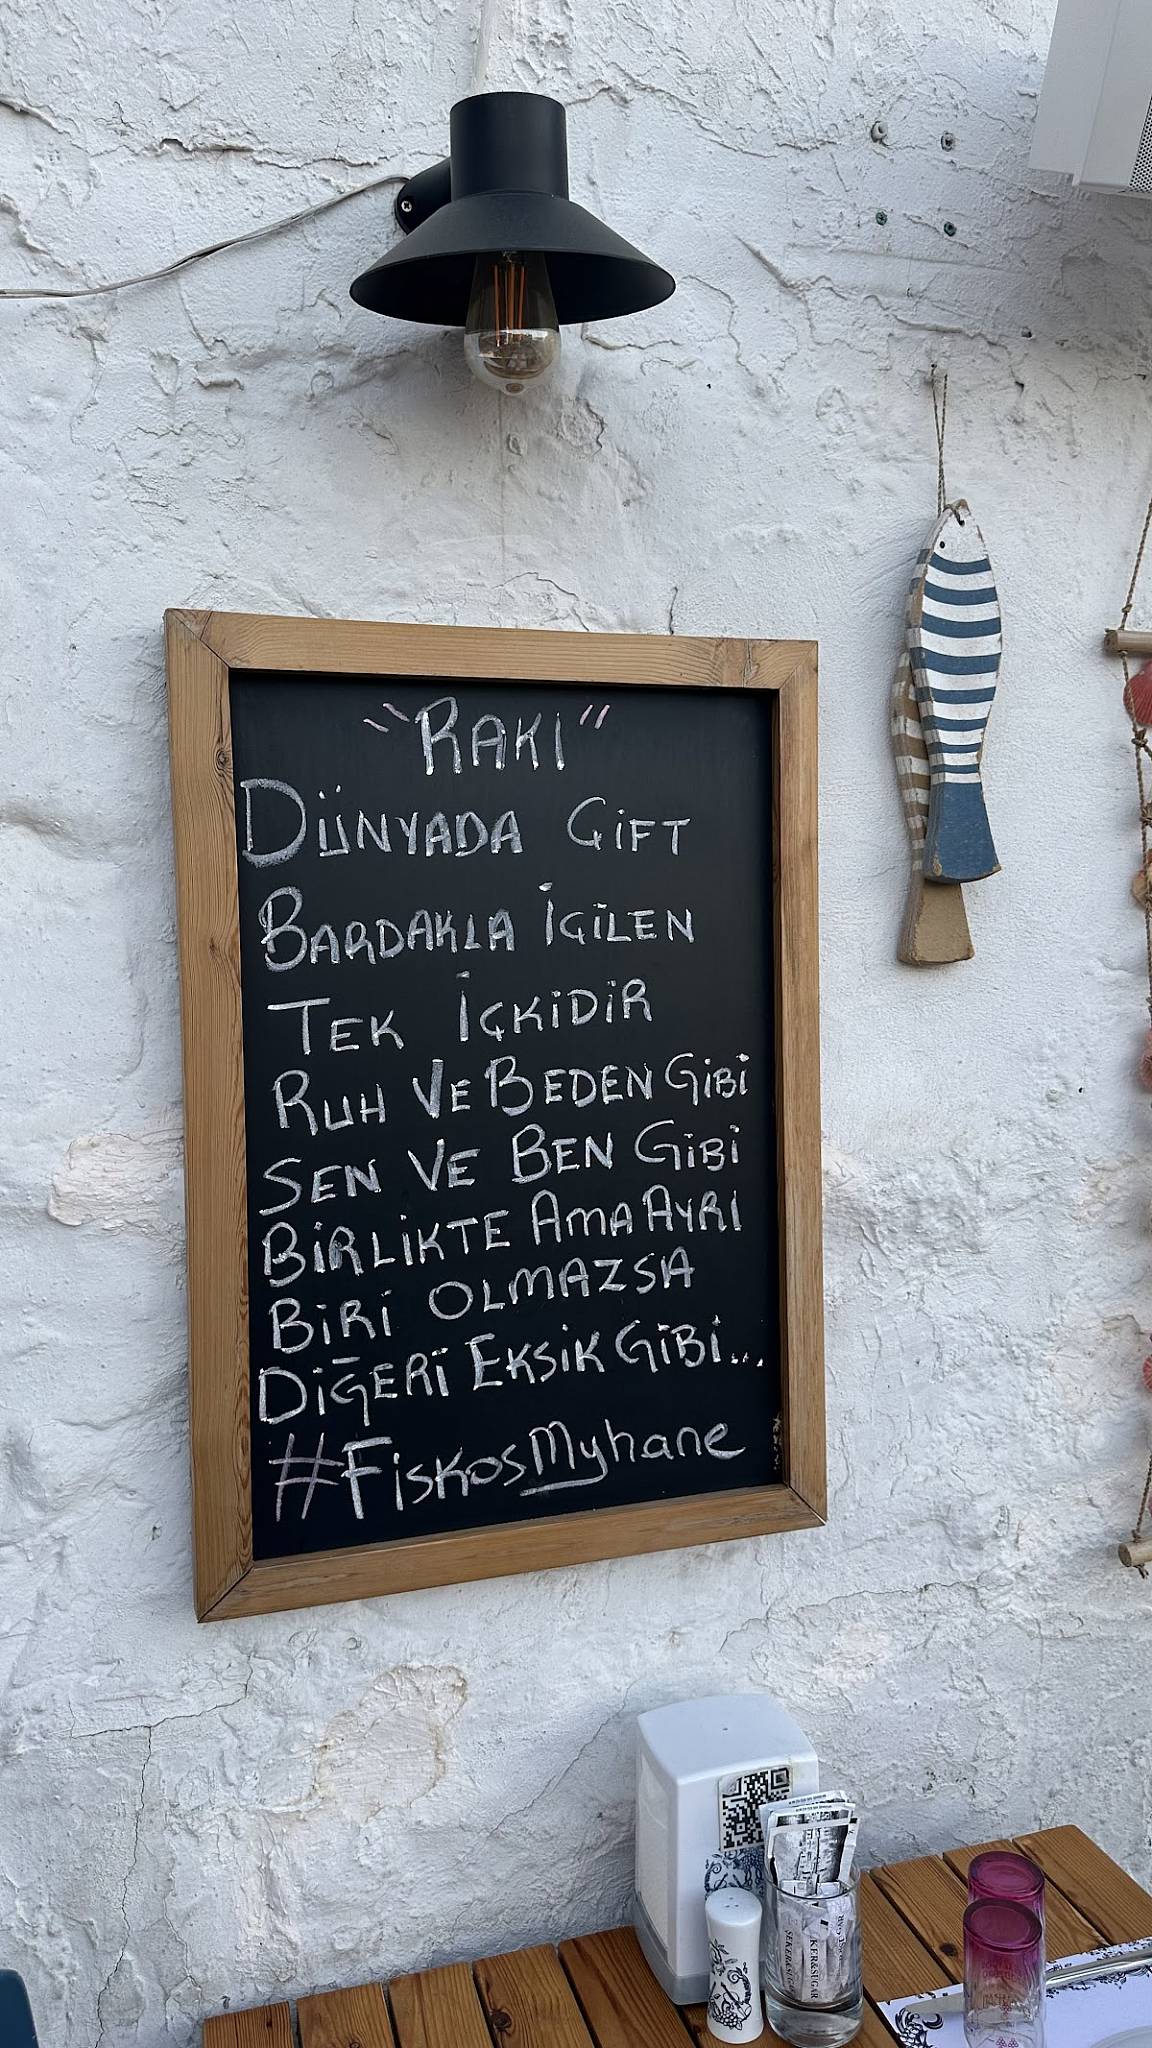 "RAKI"
DÜNYADA ÇİFT
BARDAKLA İÇİLEN
TEK İÇKİDİR
RUH VE BEDEN GİBİ
SEN VE BEN GİBİ
BİRLİKTE AMA AYRI
BİRİ OLMAZSA
DİĞERİ EKSİK GİBİ...
#FiskosMyhane
ŞEKER&SUGAR
KER&SUGAR